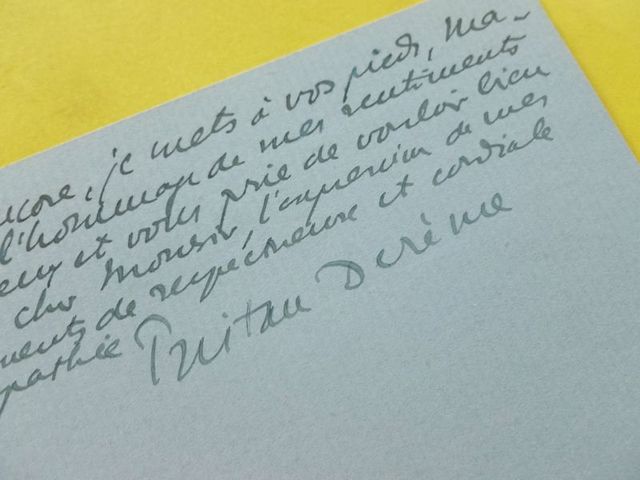 encore, je mets à vos pieds, ma-
l'hommage de mes sentiments
eux et vous prie de vouloir bien
cher Monsieur, l'expression de mes
ments de respectueuse et cordiale
pathie Tristan Derème